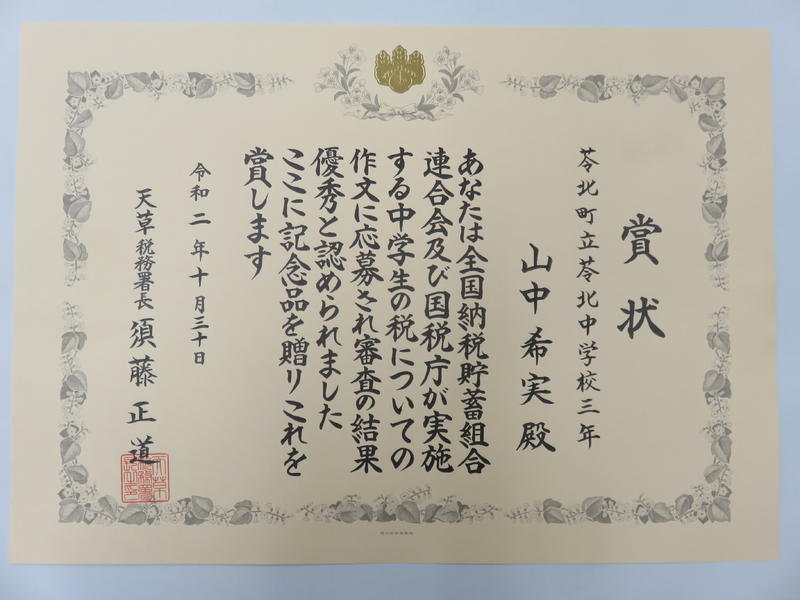 賞状
苓北町立苓北中学校三年
山中希実殿
あなたは全国納税貯蓄組合
連合会及び国税庁が実施
する中学生の税についての
作文に応募され審査の結果
優秀と認められました
ここに記念品を贈りこれを
賞します
令和二年十月三十日
天草税務署長須藤正道